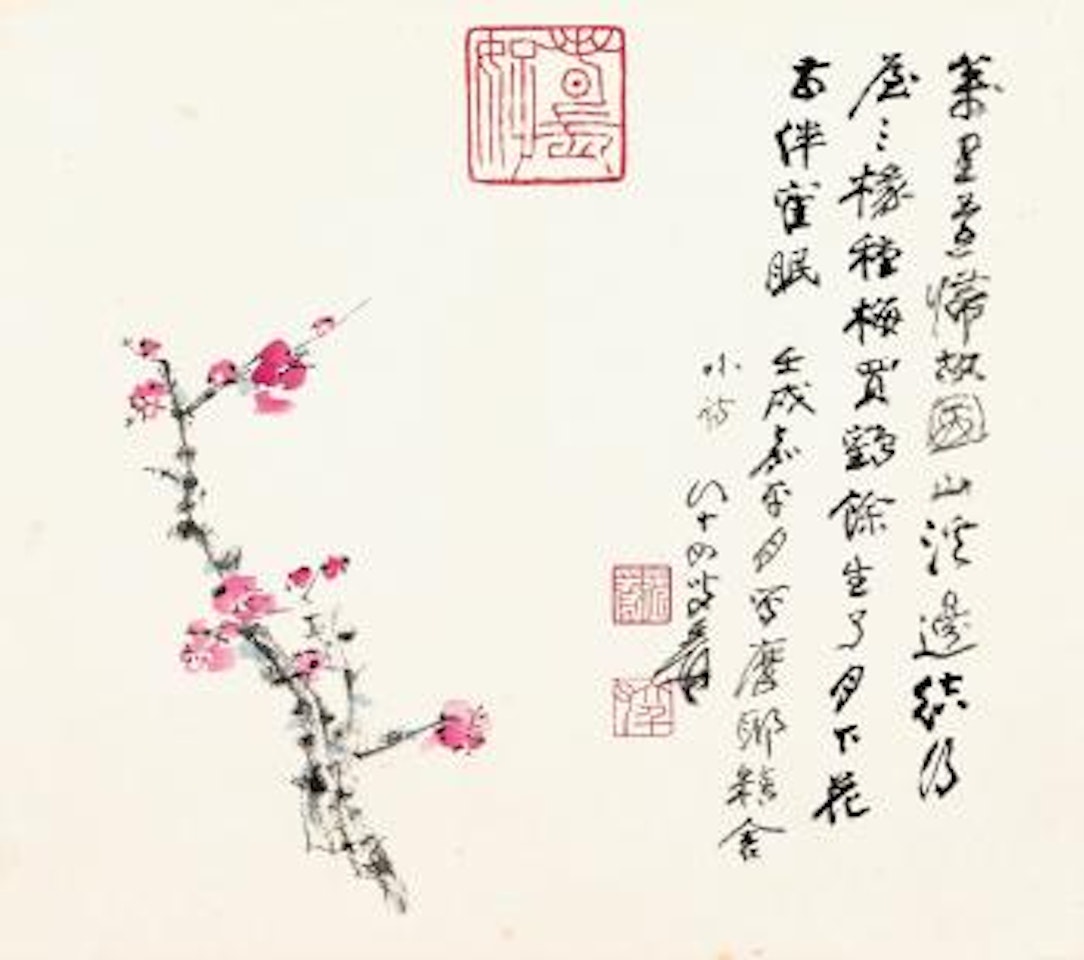 萬里意歸故國山溪邊結得
屋三椽種梅買鶴餘生了月下花
前伴寉眠 壬戌嘉平月寫摩耶精舍
小詩 八十四叟爰